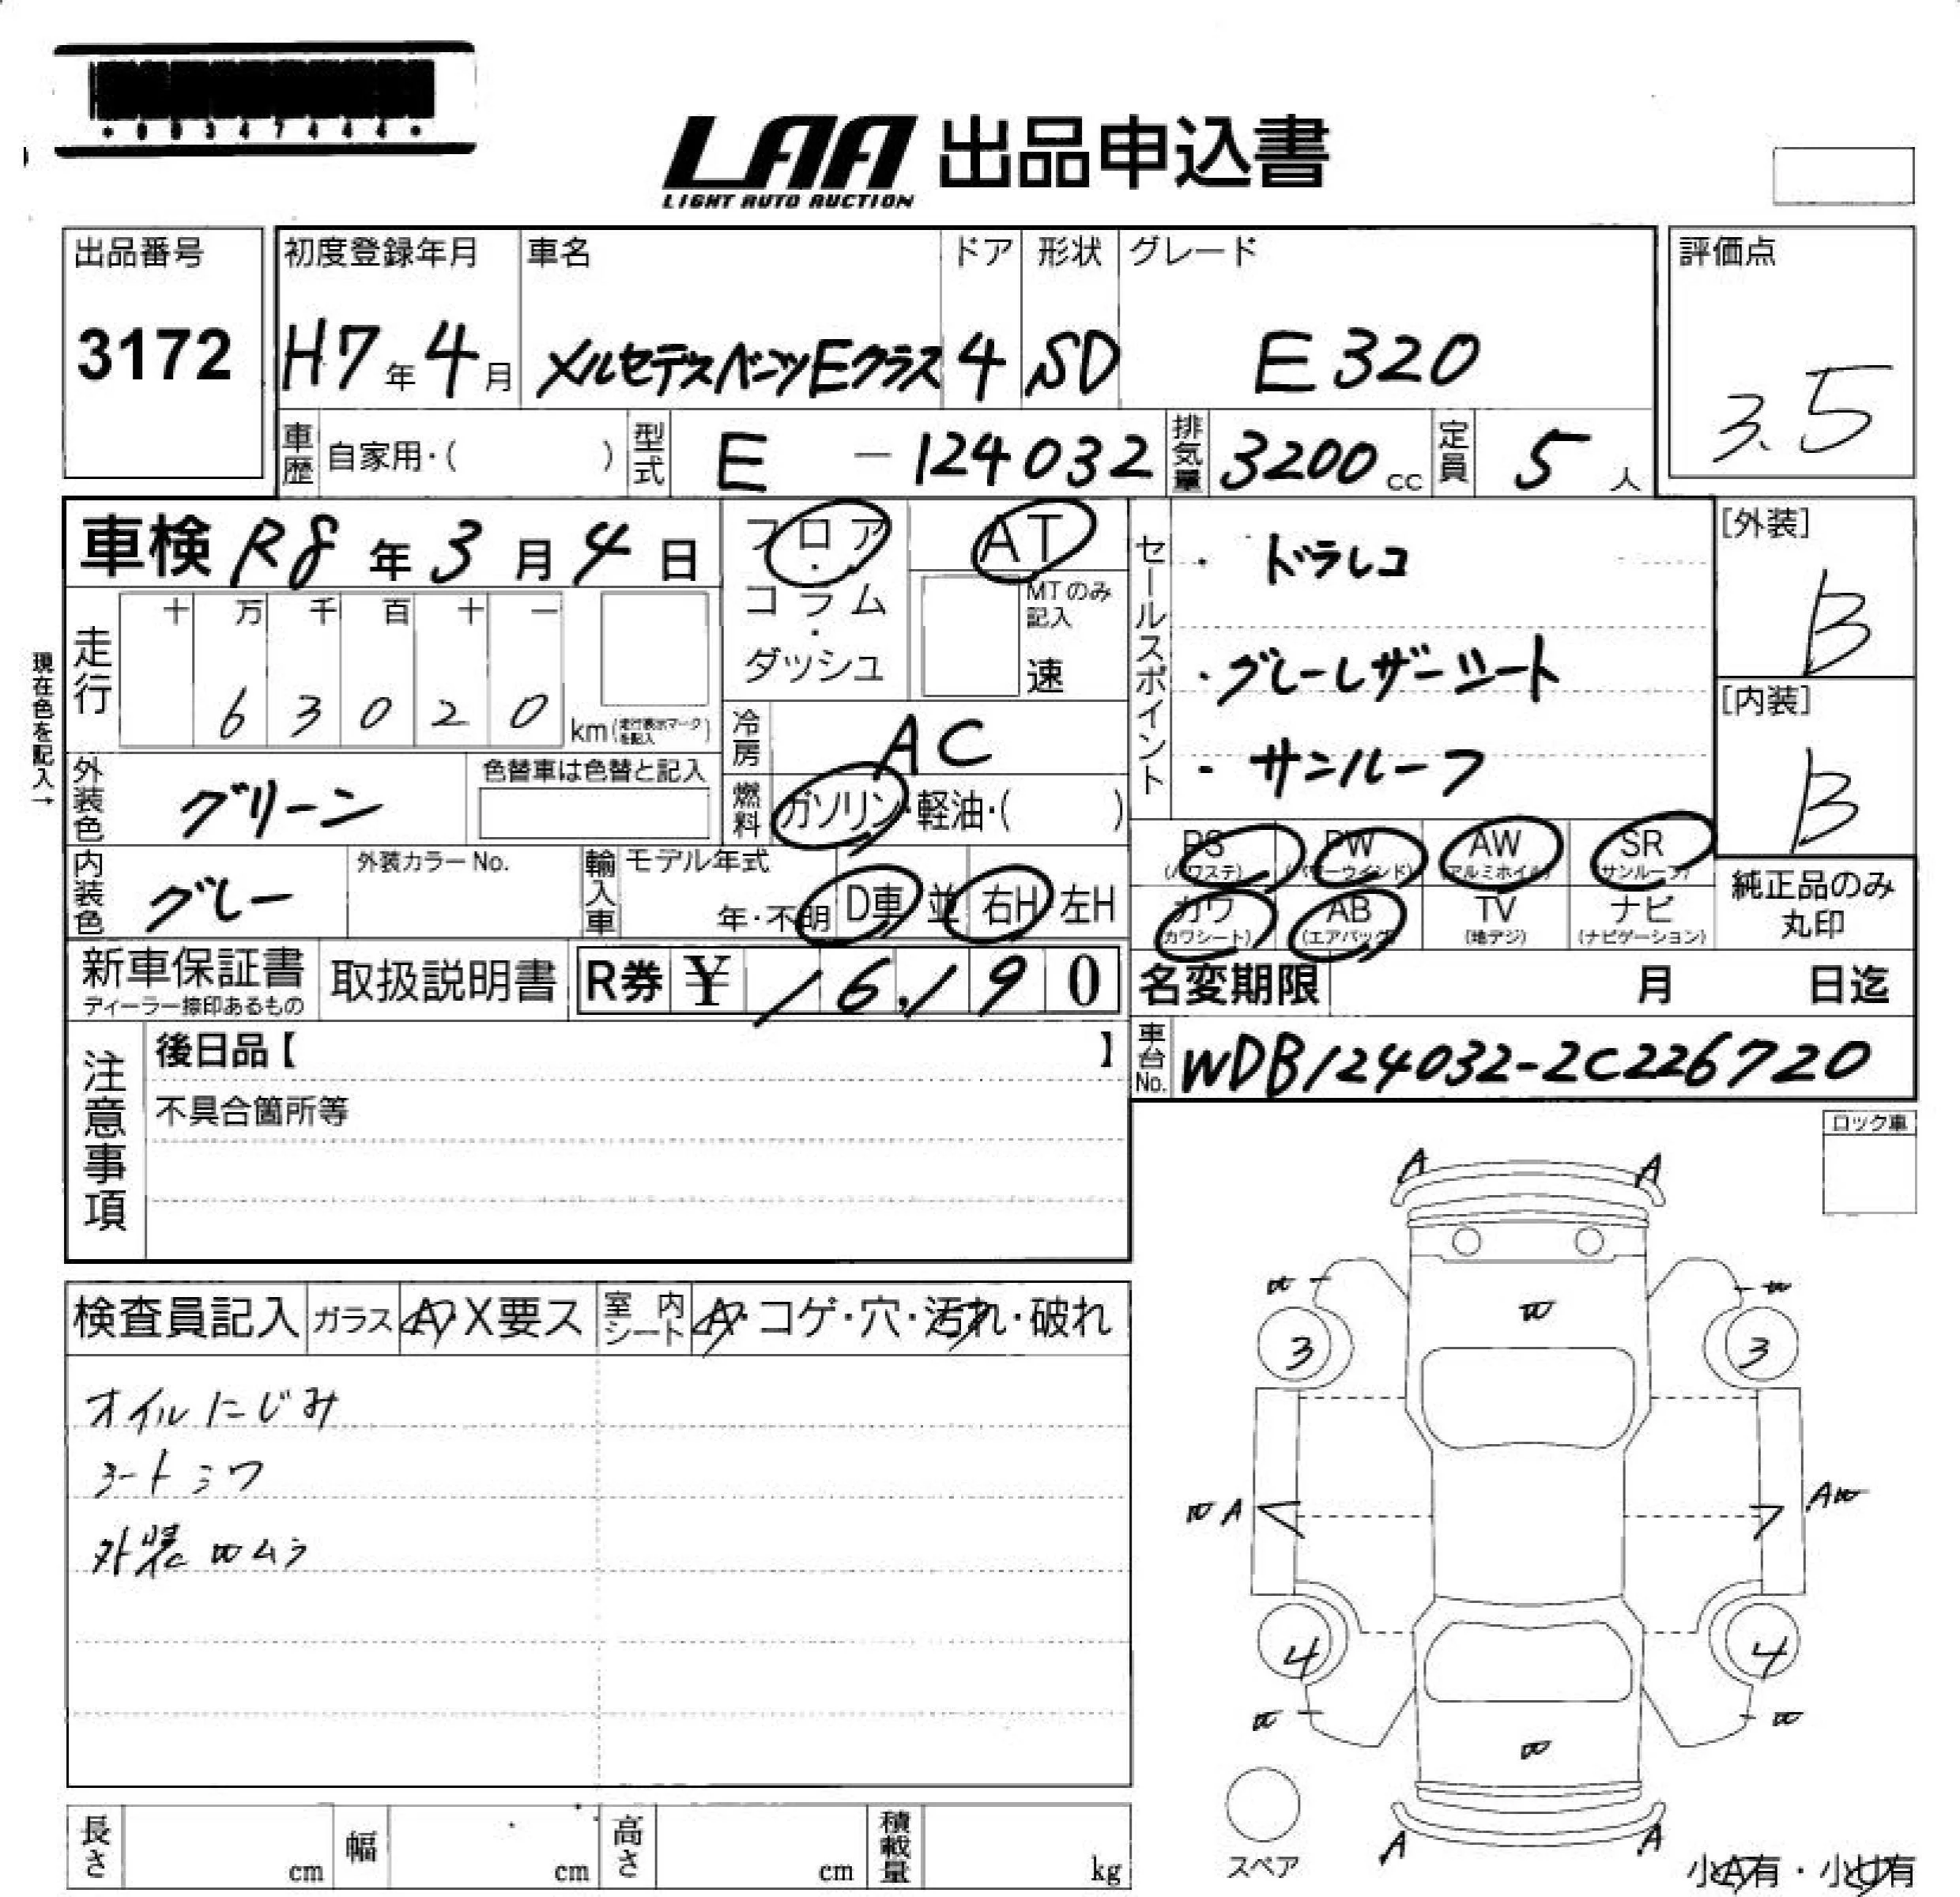 ・00347444・
LAA 出品申込書
LIGHT AUTO AUCTION
出品番号
3172
初度登録年月
H7年4月
車名
メルセデスベンツEクラス
ドア
4
形状
SD
グレード
E320
評価点
3.5
車歴
自家用・( )
型式
E - 124032
排気量
3200cc
定員
5人
車検 R8年3月4日
フロア・コラム・ダッシュ
AT
MTのみ記入
速
セールスポイント
・ドラレコ
・グレーレザーシート
・サンルーフ
[外装]
B
[内装]
B
現在色を記入→
走行
十 万 千 百 十 一
6 3 0 2 0
km(走行表示マークを記入)
冷房
AC
外装色
グリーン
色替車は色替と記入
燃料
ガソリン・軽油・( )
PS
(パワステ)
PW
(パワーウインド)
AW
(アルミホイル)
SR
(サンルーフ)
内装色
グレー
外装カラーNo.
輸入車
モデル年式
年・不明
D車 並 右H 左H
カワ
(カワシート)
AB
(エアバッグ)
TV
(地デジ)
ナビ
(ナビゲーション)
純正品のみ
丸印
新車保証書
ディーラー捺印あるもの
取扱説明書
R券 ¥ 16,190
名変期限 月 日迄
車台No.
WDB124032-2C226720
注意事項
後日品【 】
不具合箇所等
ロック車
検査員記入
ガラス
A・X要ス
室内シート
A・コゲ・穴・汚れ・破れ
オイルにじみ
シートシワ
外装 W ムラ
A A
W W
W
3 3
W A
A W
4 4
W W
W
A A
スペア
小A有・小U有
長さ cm
幅 cm
高さ cm
積載量 kg